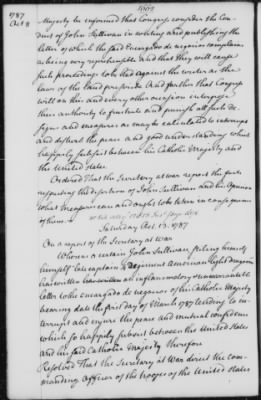 1787
Octr 8
Majesty be informed that Congress consider the Con-
duct of John Sullivan in writing and publishing the
letter of which the said Encargado de negocios complains
as being very reprehensible and that they will cause
such proceedings to be had against the writer as the
laws of the land prescribe And farther that Congress
will on this and every other occasion interpose
their authority to frustrate and punish all such de-
signs and measures as may be calculated to interrupt
and disturb the peace and good understanding which
happily subsist between his Catholic Majesty and
the United States
Ordered That the Secretary at war report the facts
respecting the desertion of John Sullivan and his Opinion
what measures can and ought to be taken in consequence
of them
Saturday Oct. 13. 1787
On a report of the Secretary at war
Whereas a certain John Sullivan stiling himself
late captain American light dragoons
has written an inflammatory letter
to the encargado de negocios of his Catholic Majesty
bearing date the first day of March 1787 tending to in-
terrupt and injure the peace and mutual confidence
which so happily subsist between the United States
and his said Catholic Majesty therefore
Resolved That the Secretary at War direct the com-
manding Officer of the troops of the United States